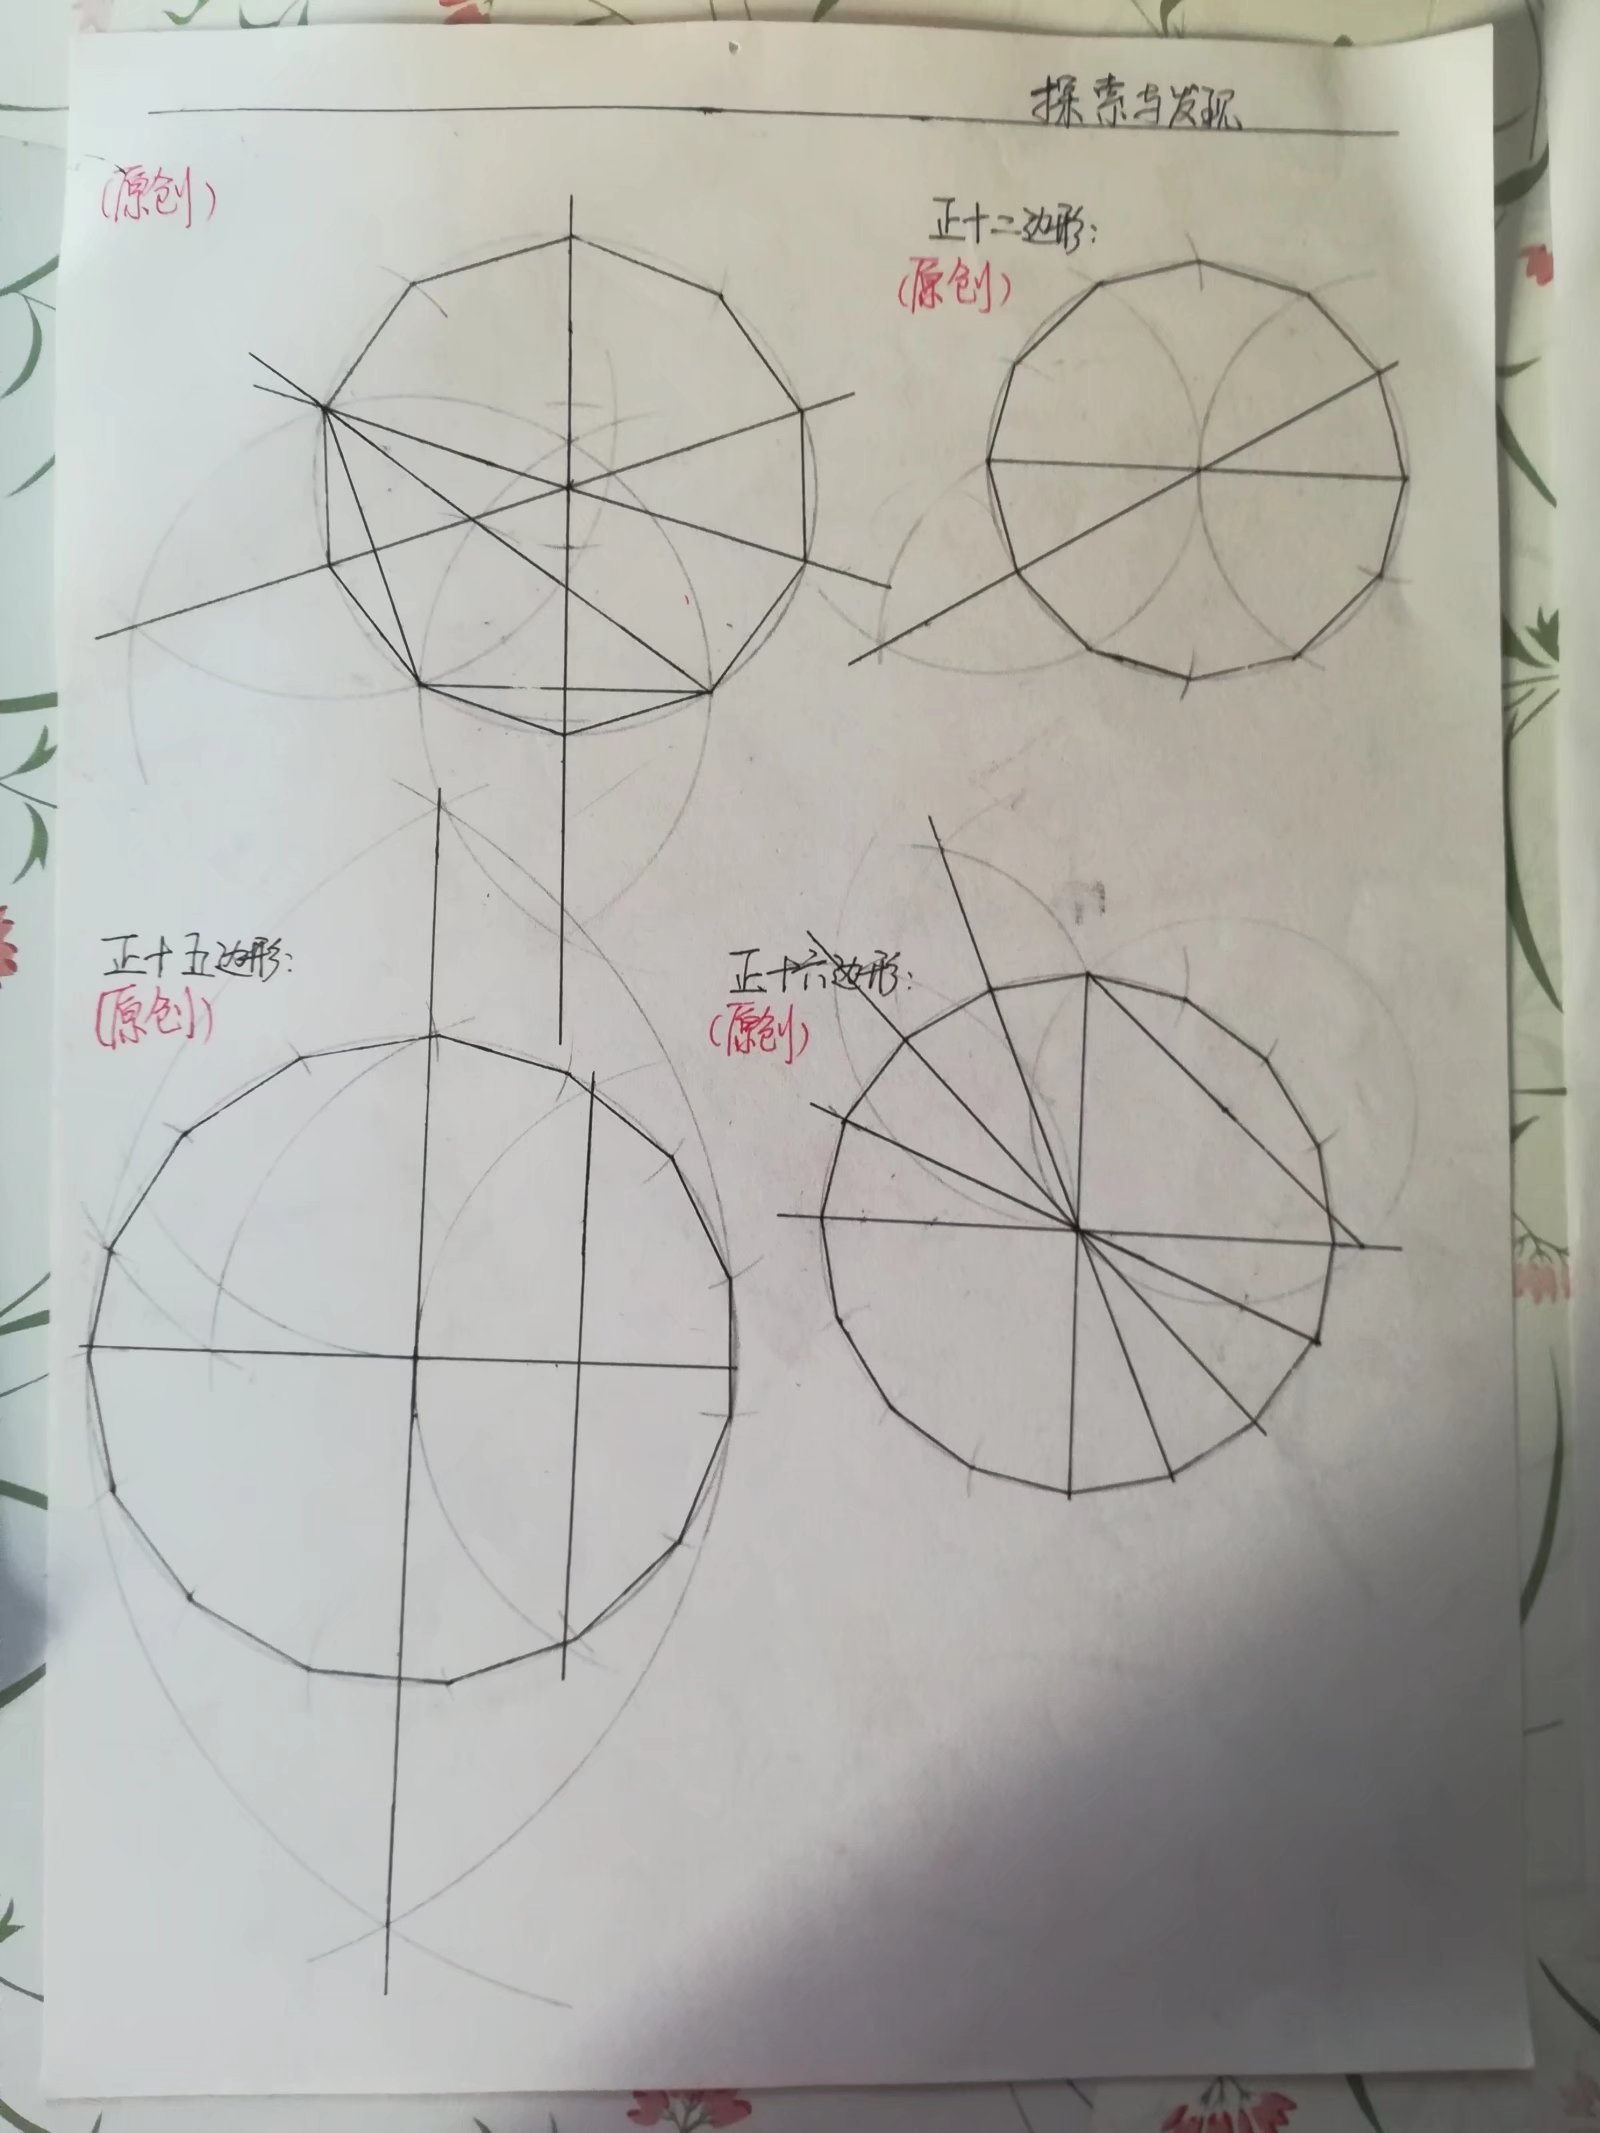 探索与发现
(原创)
正十二边形:
(原创)
正十五边形:
(原创)
正十六边形:
(原创)